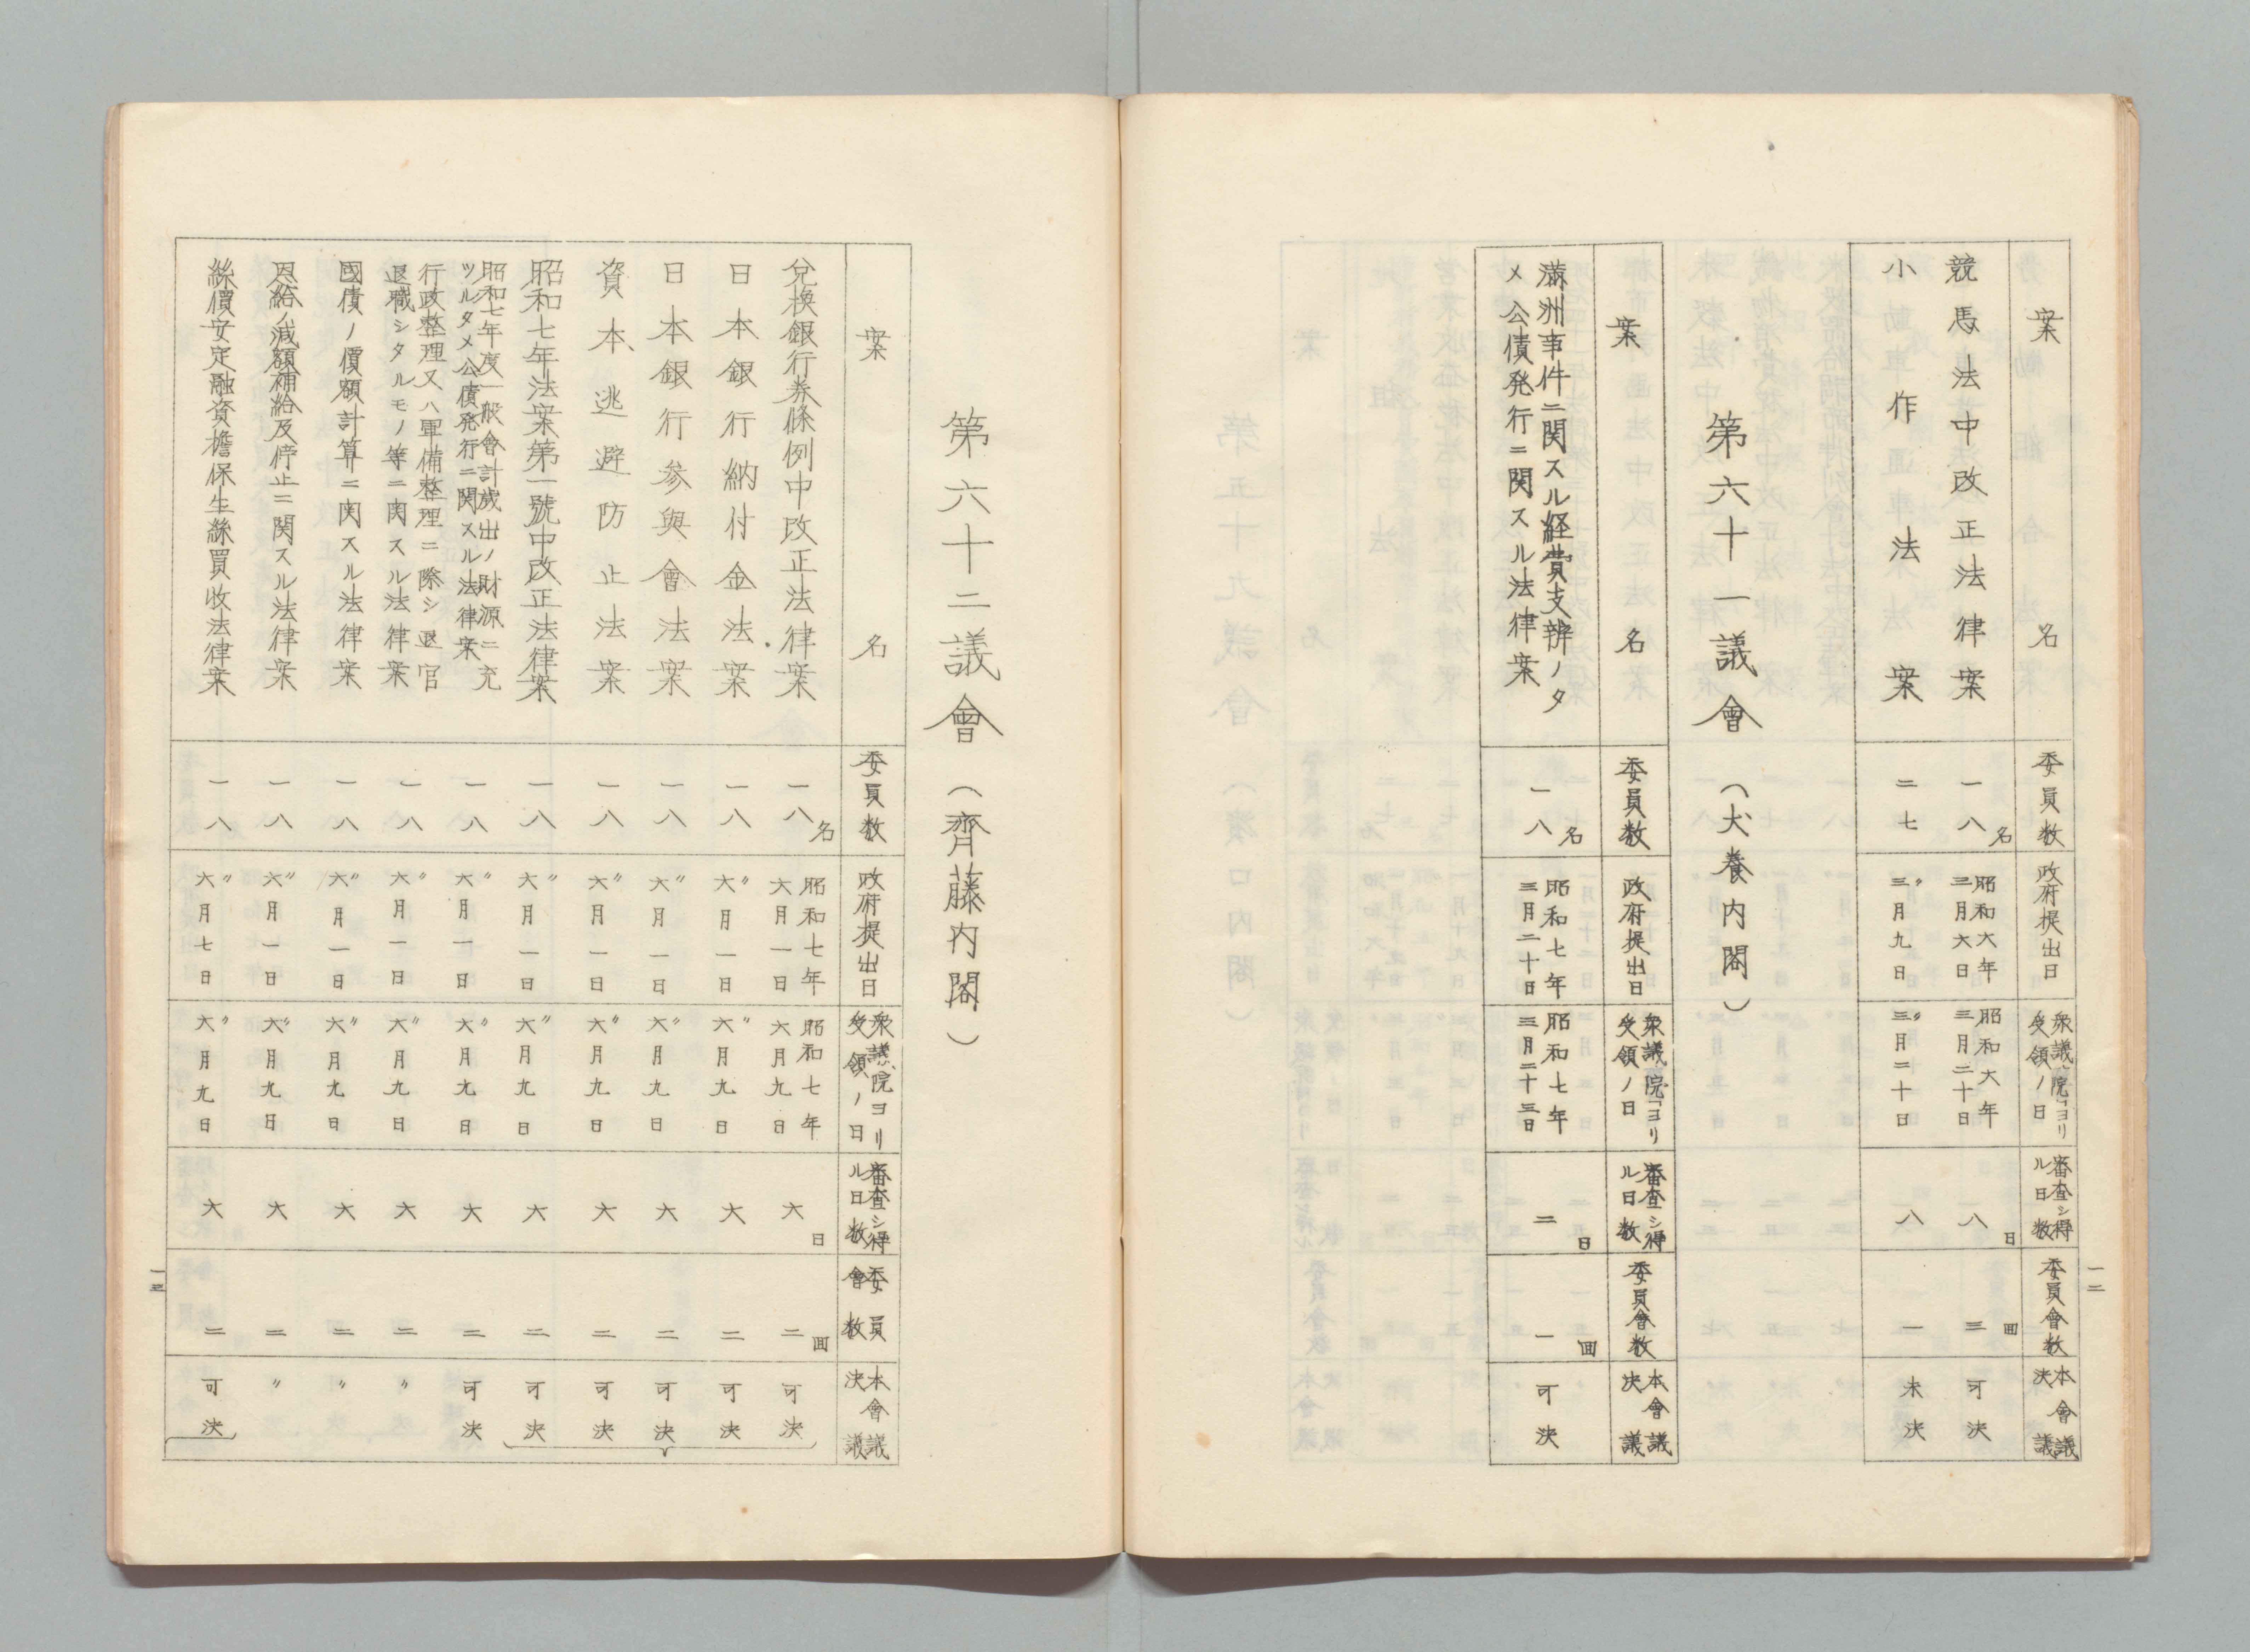 案名
委員数
政府提出日
衆議院ヨリ
受領ノ日
審査シ得
ル日数
委員會数
本會議
決議
競馬法中改正法律案
一八名
昭和六年
三月六日
昭和六年
三月二十日
八日
三囬
可決
小作法案
二七
〃
三月九日
〃
三月二十日
八
一
未決
一二
第六十一議會(犬養内閣)
案名
委員数
政府提出日
衆議院ヨリ
受領ノ日
審査シ得
ル日数
委員會数
本會議
決議
満洲事件ニ関スル経費支辨ノタ
メ公債発行ニ関スル法律案
一八名
昭和七年
三月二十日
昭和七年
三月二十三日
二日
一囬
可決
第六十二議會(齊藤内閣)
案名
委員数
政府提出日
衆議院ヨリ
受領ノ日
審査シ得
ル日数
委員
會数
本會議
決議
兌換銀行券條例中改正法律案
一八名
昭和七年
六月一日
昭和七年
六月九日
六日
二囬
可決
日本銀行納付金法案
一八
〃
六月一日
〃
六月九日
六
二
可決
日本銀行参與會法案
一八
〃
六月一日
〃
六月九日
六
二
可決
資本逃避防止法案
一八
〃
六月一日
〃
六月九日
六
二
可決
昭和七年法案第一號中改正法律案
一八
〃
六月一日
〃
六月九日
六
二
可決
昭和七年度一般會計歳出ノ財源ニ充
ツルタメ公債発行ニ関スル法律案
一八
〃
六月一日
〃
六月九日
六
二
可決
行政整理又ハ軍備整理ニ際シ退官
退職シタルモノ等ニ関スル法律案
一八
〃
六月一日
〃
六月九日
六
二
〃
國債ノ價額計算ニ関スル法律案
一八
〃
六月一日
〃
六月九日
六
二
〃
恩給ノ減額補給及停止ニ関スル法律案
一八
〃
六月一日
〃
六月九日
六
二
〃
絲價安定融資擔保生絲買收法律案
一八
〃
六月七日
〃
六月九日
六
二
可決
一三